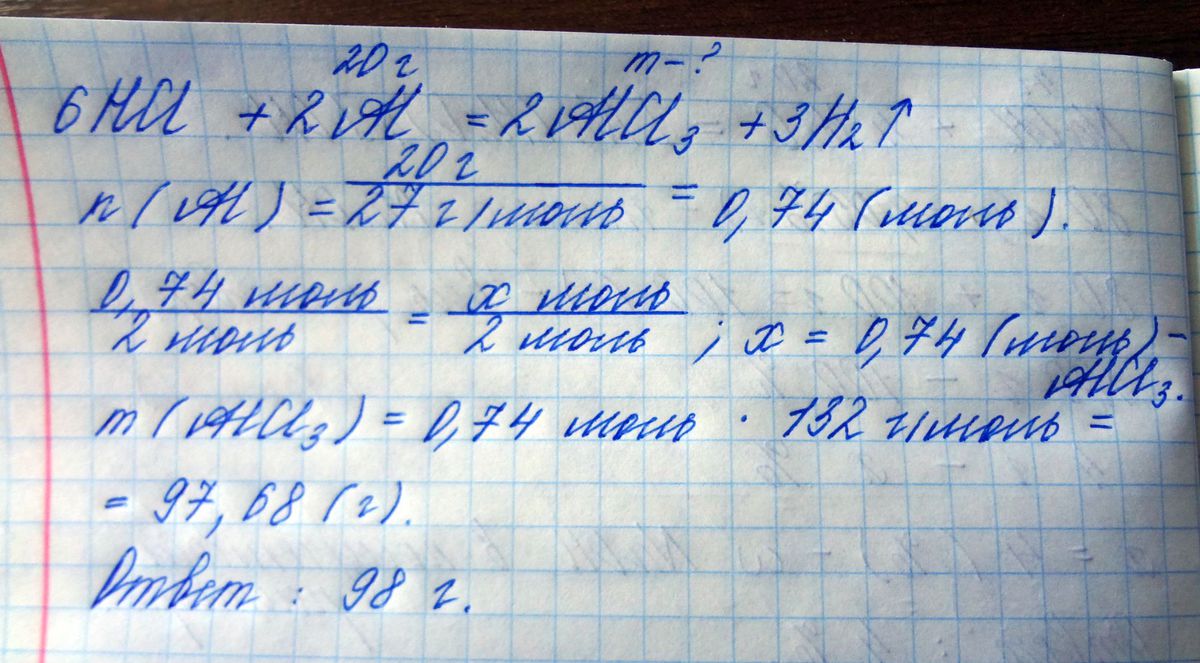 20 г m - ?
6HCl + 2Al = 2AlCl₃ + 3H₂↑
20 г
n (Al) = 27 г/моль = 0,74 (моль).
0,74 моль = x моль
2 моль 2 моль ; x = 0,74 (моль) -
AlCl₃.
m (AlCl₃) = 0,74 моль · 132 г/моль =
= 97,68 (г).
Ответ : 98 г.